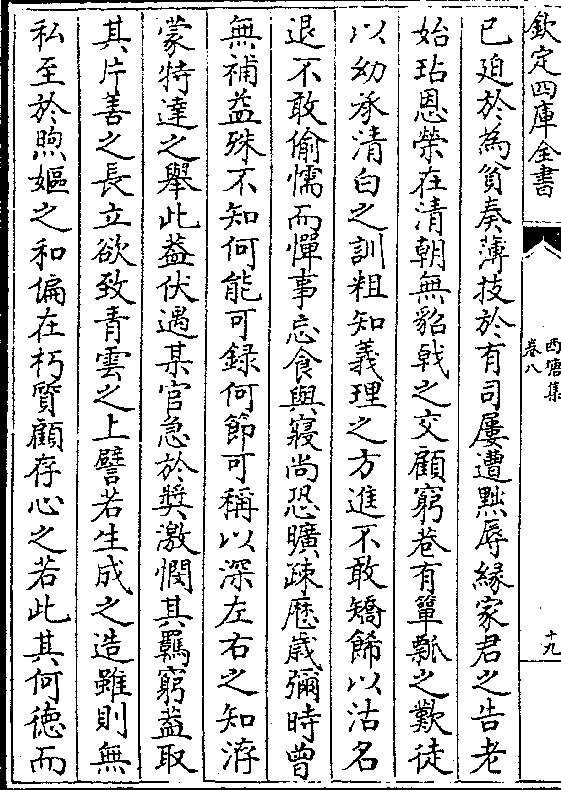 欽定四庫全書
西塘集
卷八
十九
已廹於為貧奏薄技於有司屢遭黜辱縁家君之告老
始玷恩榮在清朝無貂㦸之交顧窮巷有簞瓢之歎徒
以幼承清白之訓粗知義理之方進不敢矯餙以沽名
退不敢偷懦而憚事忘食與寢尚恐曠疎歴歲彌時曽
無補益殊不知何能可録何節可稱以深左右之知洊
蒙特達之舉此葢伏遇某官急於奬激憫其羈窮葢取
其片善之長立欲致青雲之上譬若生成之造雖則無
私至於煦嫗之和偏在朽質顧存心之若此其何徳而